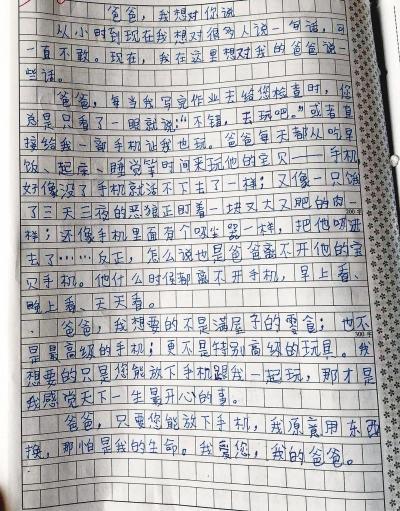 爸爸，我想对你说
从小时到现在我想对很多人说一句话，可
一直不敢。现在，我在这里想对我的爸爸说一
些话。
爸爸，每当我写完作业去给您检查时，您
总是只看了一眼就说："不错，去玩吧。"或者直
接给我一部手机让我也玩。爸爸每天都从吃早
饭、起床、睡觉等时间来玩他的宝贝——手机，
好像没了手机就活不下去了一样；又像一只饿
了三天三夜的恶狼正盯着一块又大又肥的肉一
样；还像手机里面有个吸尘器一样，把他吸进
去了……反正，怎么说也是爸爸离不开他的宝
贝手机。他什么时候都离不开手机，早上看、
晚上看、天天看。
300字
爸爸，我想要的不是满屋子的零食；也不
是最高级的手机；更不是特别高级的玩具。我
想要的只是您能放下手机跟我一起玩，那才是
我感觉天下一生最开心的事。
爸爸，只要您能放下手机，我愿意用东西
换，那怕是我的生命。我爱您，我的爸爸。